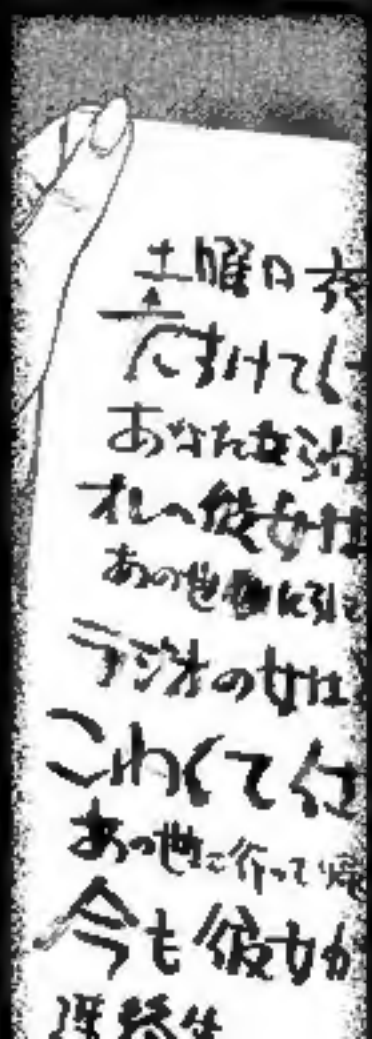 土曜日夜
たすけてく
あなたなら
オレの彼女は
あの世に引
ラジオの女は
こわくて仕
あの世に行って帰
今も彼女が